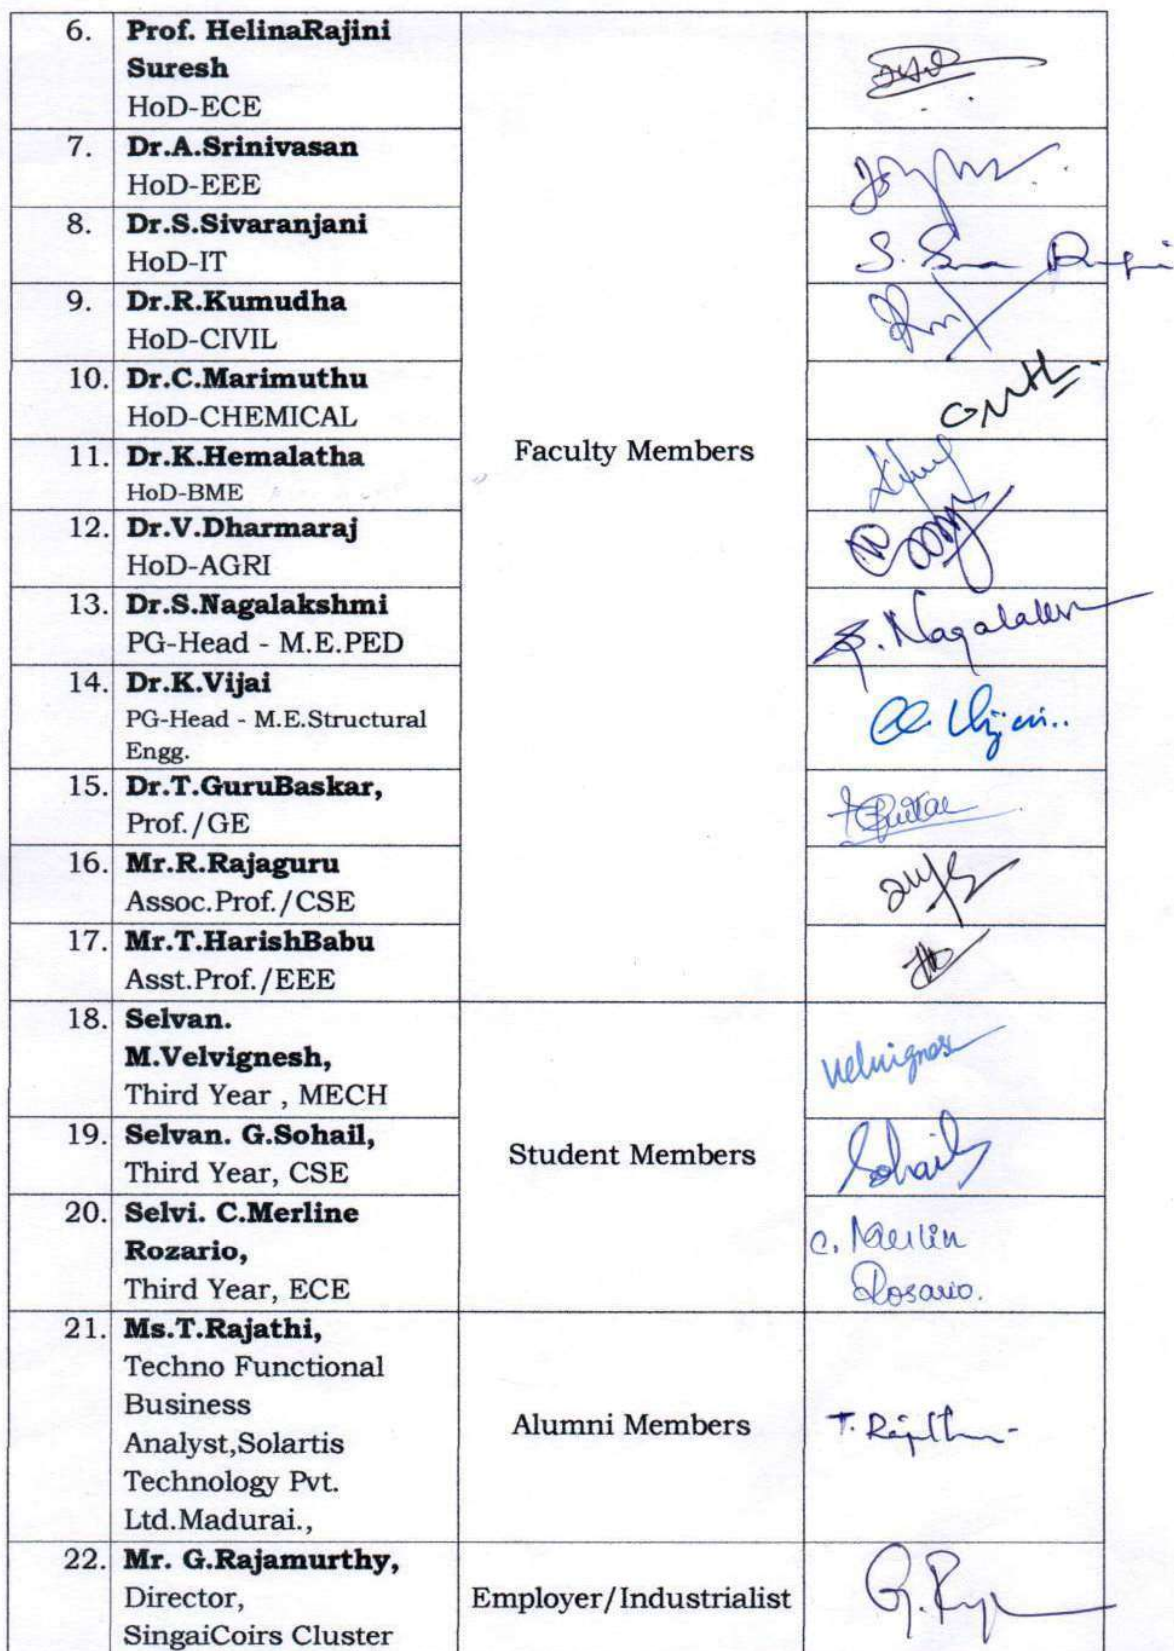 6. Prof. HelinaRajini
Suresh
HoD-ECE
7. Dr.A.Srinivasan
HoD-EEE
8. Dr.S.Sivaranjani
HoD-IT
9. Dr.R.Kumudha
HoD-CIVIL
10. Dr.C.Marimuthu
HoD-CHEMICAL
11. Dr.K.Hemalatha
HoD-BME
12. Dr.V.Dharmaraj
HoD-AGRI
13. Dr.S.Nagalakshmi
PG-Head - M.E.PED
14. Dr.K.Vijai
PG-Head - M.E.Structural
Engg.
15. Dr.T.GuruBaskar,
Prof./GE
16. Mr.R.Rajaguru
Assoc.Prof./CSE
17. Mr.T.HarishBabu
Asst.Prof./EEE
Faculty Members
18. Selvan.
M.Velvignesh,
Third Year , MECH
19. Selvan. G.Sohail,
Third Year, CSE
Sohail
20. Selvi. C.Merline
Rozario,
Third Year, ECE
C. Merlin
Rosario.
Student Members
21. Ms.T.Rajathi,
Techno Functional
Business
Analyst,Solartis
Technology Pvt.
Ltd.Madurai.,
Alumni Members
22. Mr. G.Rajamurthy,
Director,
SingaiCoirs Cluster
Employer/Industrialist